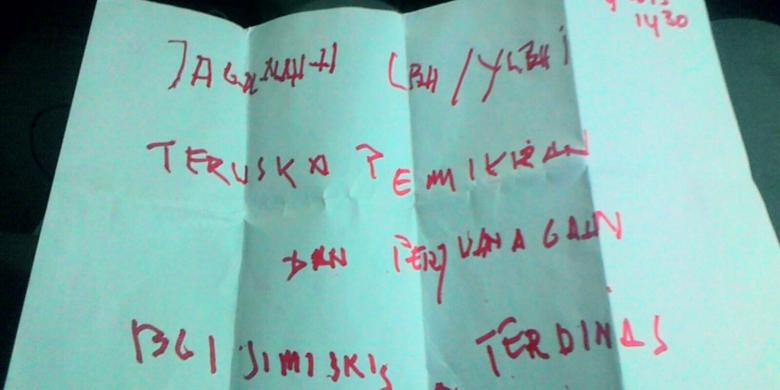 1430
JAGANLAH LBH/YLBHI
TERUSKA PEMIKIRAN
DAN PERJUANAGAN
BGI SIMISKIS TERDINAS